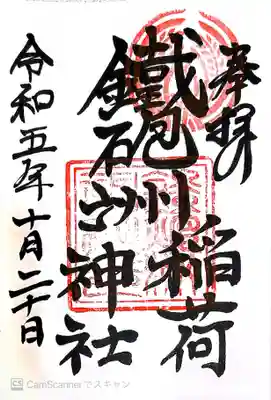 奉拝
鐵砲洲稲荷
神社
令和五年十月二十日
CS CamScannerでスキャン